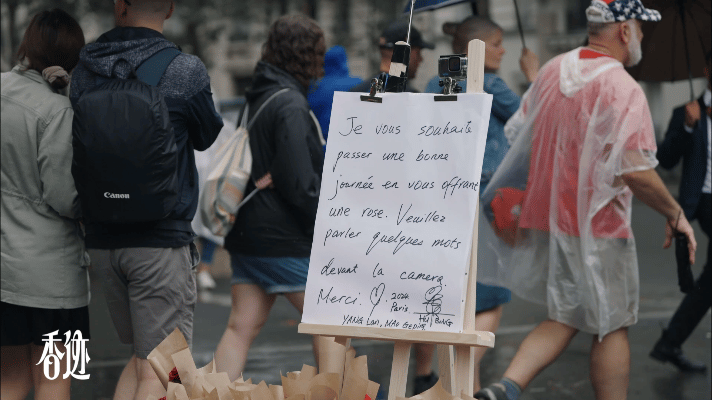 Je vous souhaite
passer une bonne
journée en vous offrant
une rose. Veuillez
parler quelques mots
devant la camera.
Merci. ♡ 2024
Paris
YANG Lan, MAO Geping
Canon
香迹